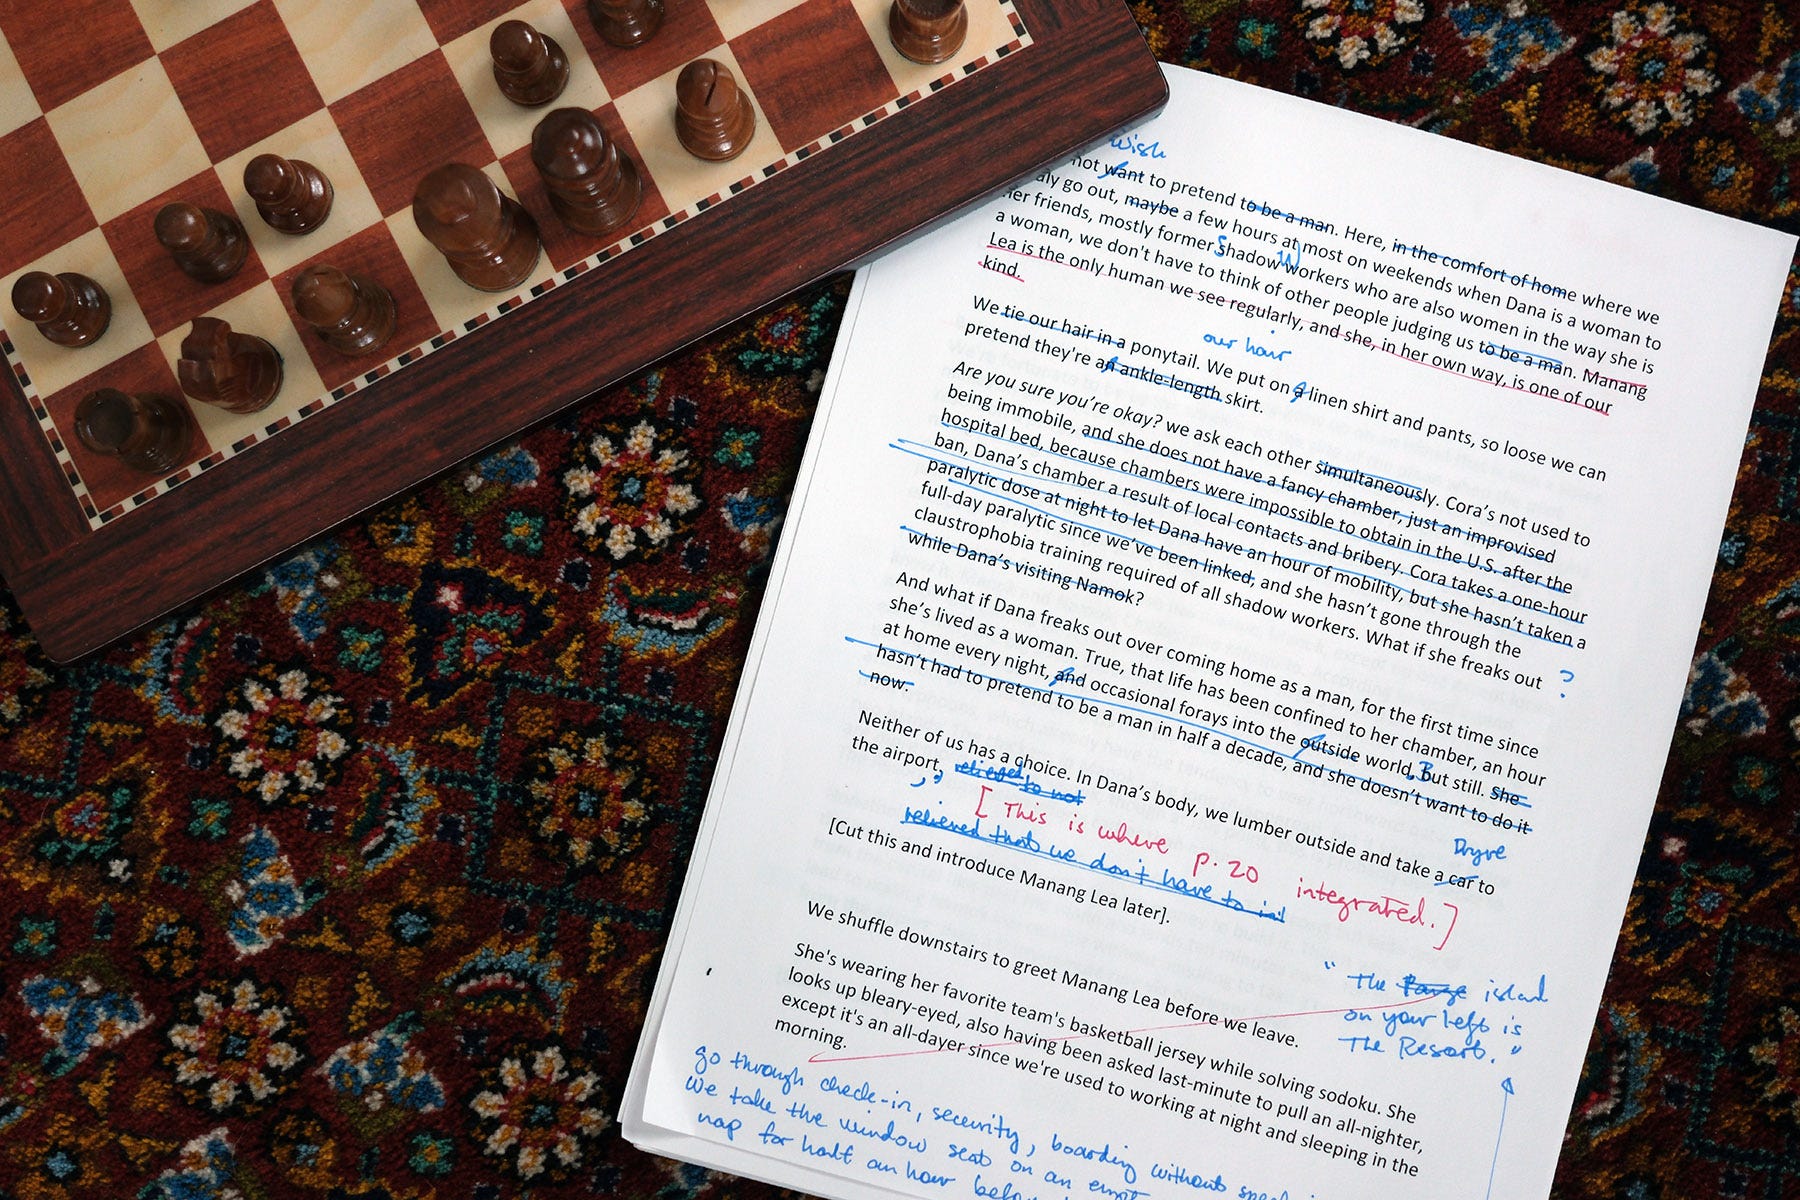 wish
not want to pretend to be a man. Here, in the comfort of home where we
go out, maybe a few hours at most on weekends when Dana is a woman to
her friends, mostly former Shadow Workers who are also women in the way she is
a woman, we don't have to think of other people judging us to be a man. Manang
Lea is the only human we see regularly, and she, in her own way, is one of our
kind.
our hair
We tie our hair in a ponytail. We put on a linen shirt and pants, so loose we can
pretend they're an ankle-length skirt.
Are you sure you're okay? we ask each other simultaneously. Cora's not used to
being immobile, and she does not have a fancy chamber, just an improvised
hospital bed, because chambers were impossible to obtain in the U.S. after the
ban, Dana's chamber a result of local contacts and bribery. Cora takes a one-hour
paralytic dose at night to let Dana have an hour of mobility, but she hasn't taken a
full-day paralytic since we've been linked, and she hasn't gone through the
claustrophobia training required of all shadow workers. What if she freaks out
while Dana's visiting Namok?
?
And what if Dana freaks out over coming home as a man, for the first time since
she's lived as a woman. True, that life has been confined to her chamber, an hour
at home every night, and occasional forays into the outside world, But still. She
hasn't had to pretend to be a man in half a decade, and she doesn't want to do it
now.
Dryve
Neither of us has a choice. In Dana's body, we lumber outside and take a car to
the airport, relieved to not
[This is where p. 20 integrated.]
relieved that we don't have to
[Cut this and introduce Manang Lea later].
We shuffle downstairs to greet Manang Lea before we leave.
She's wearing her favorite team's basketball jersey while solving sodoku. She
looks up bleary-eyed, also having been asked last-minute to pull an all-nighter,
except it's an all-dayer since we're used to working at night and sleeping in the
morning.
"The island
on your left is
The Resort."
go through check-in, security, boarding without
We take the window seat on an
nap for half an hour